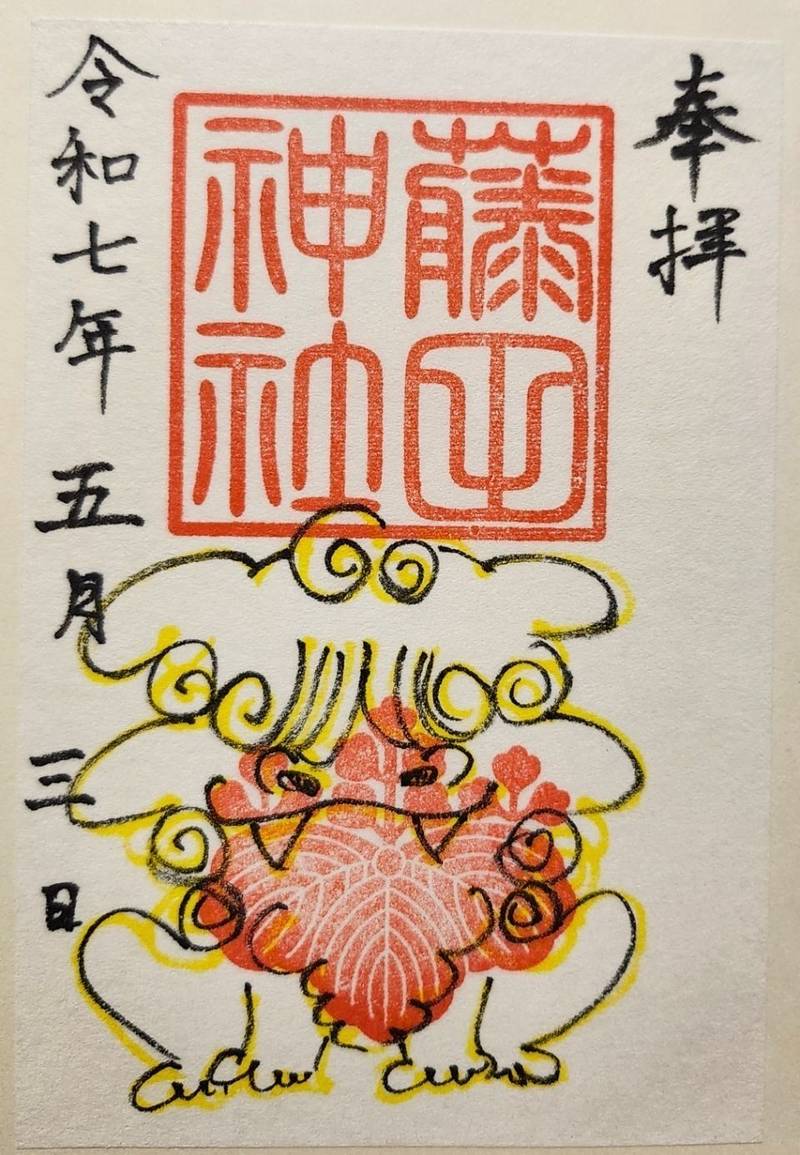 奉拝
藤田
神社
令和七年五月三日